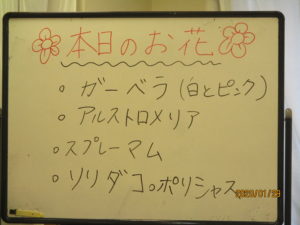 本日のお花
。ガーベラ(白とピンク)
。アルストロメリア
。スプレーマム
。ソリダコ。ポリシャス
2020/01/23